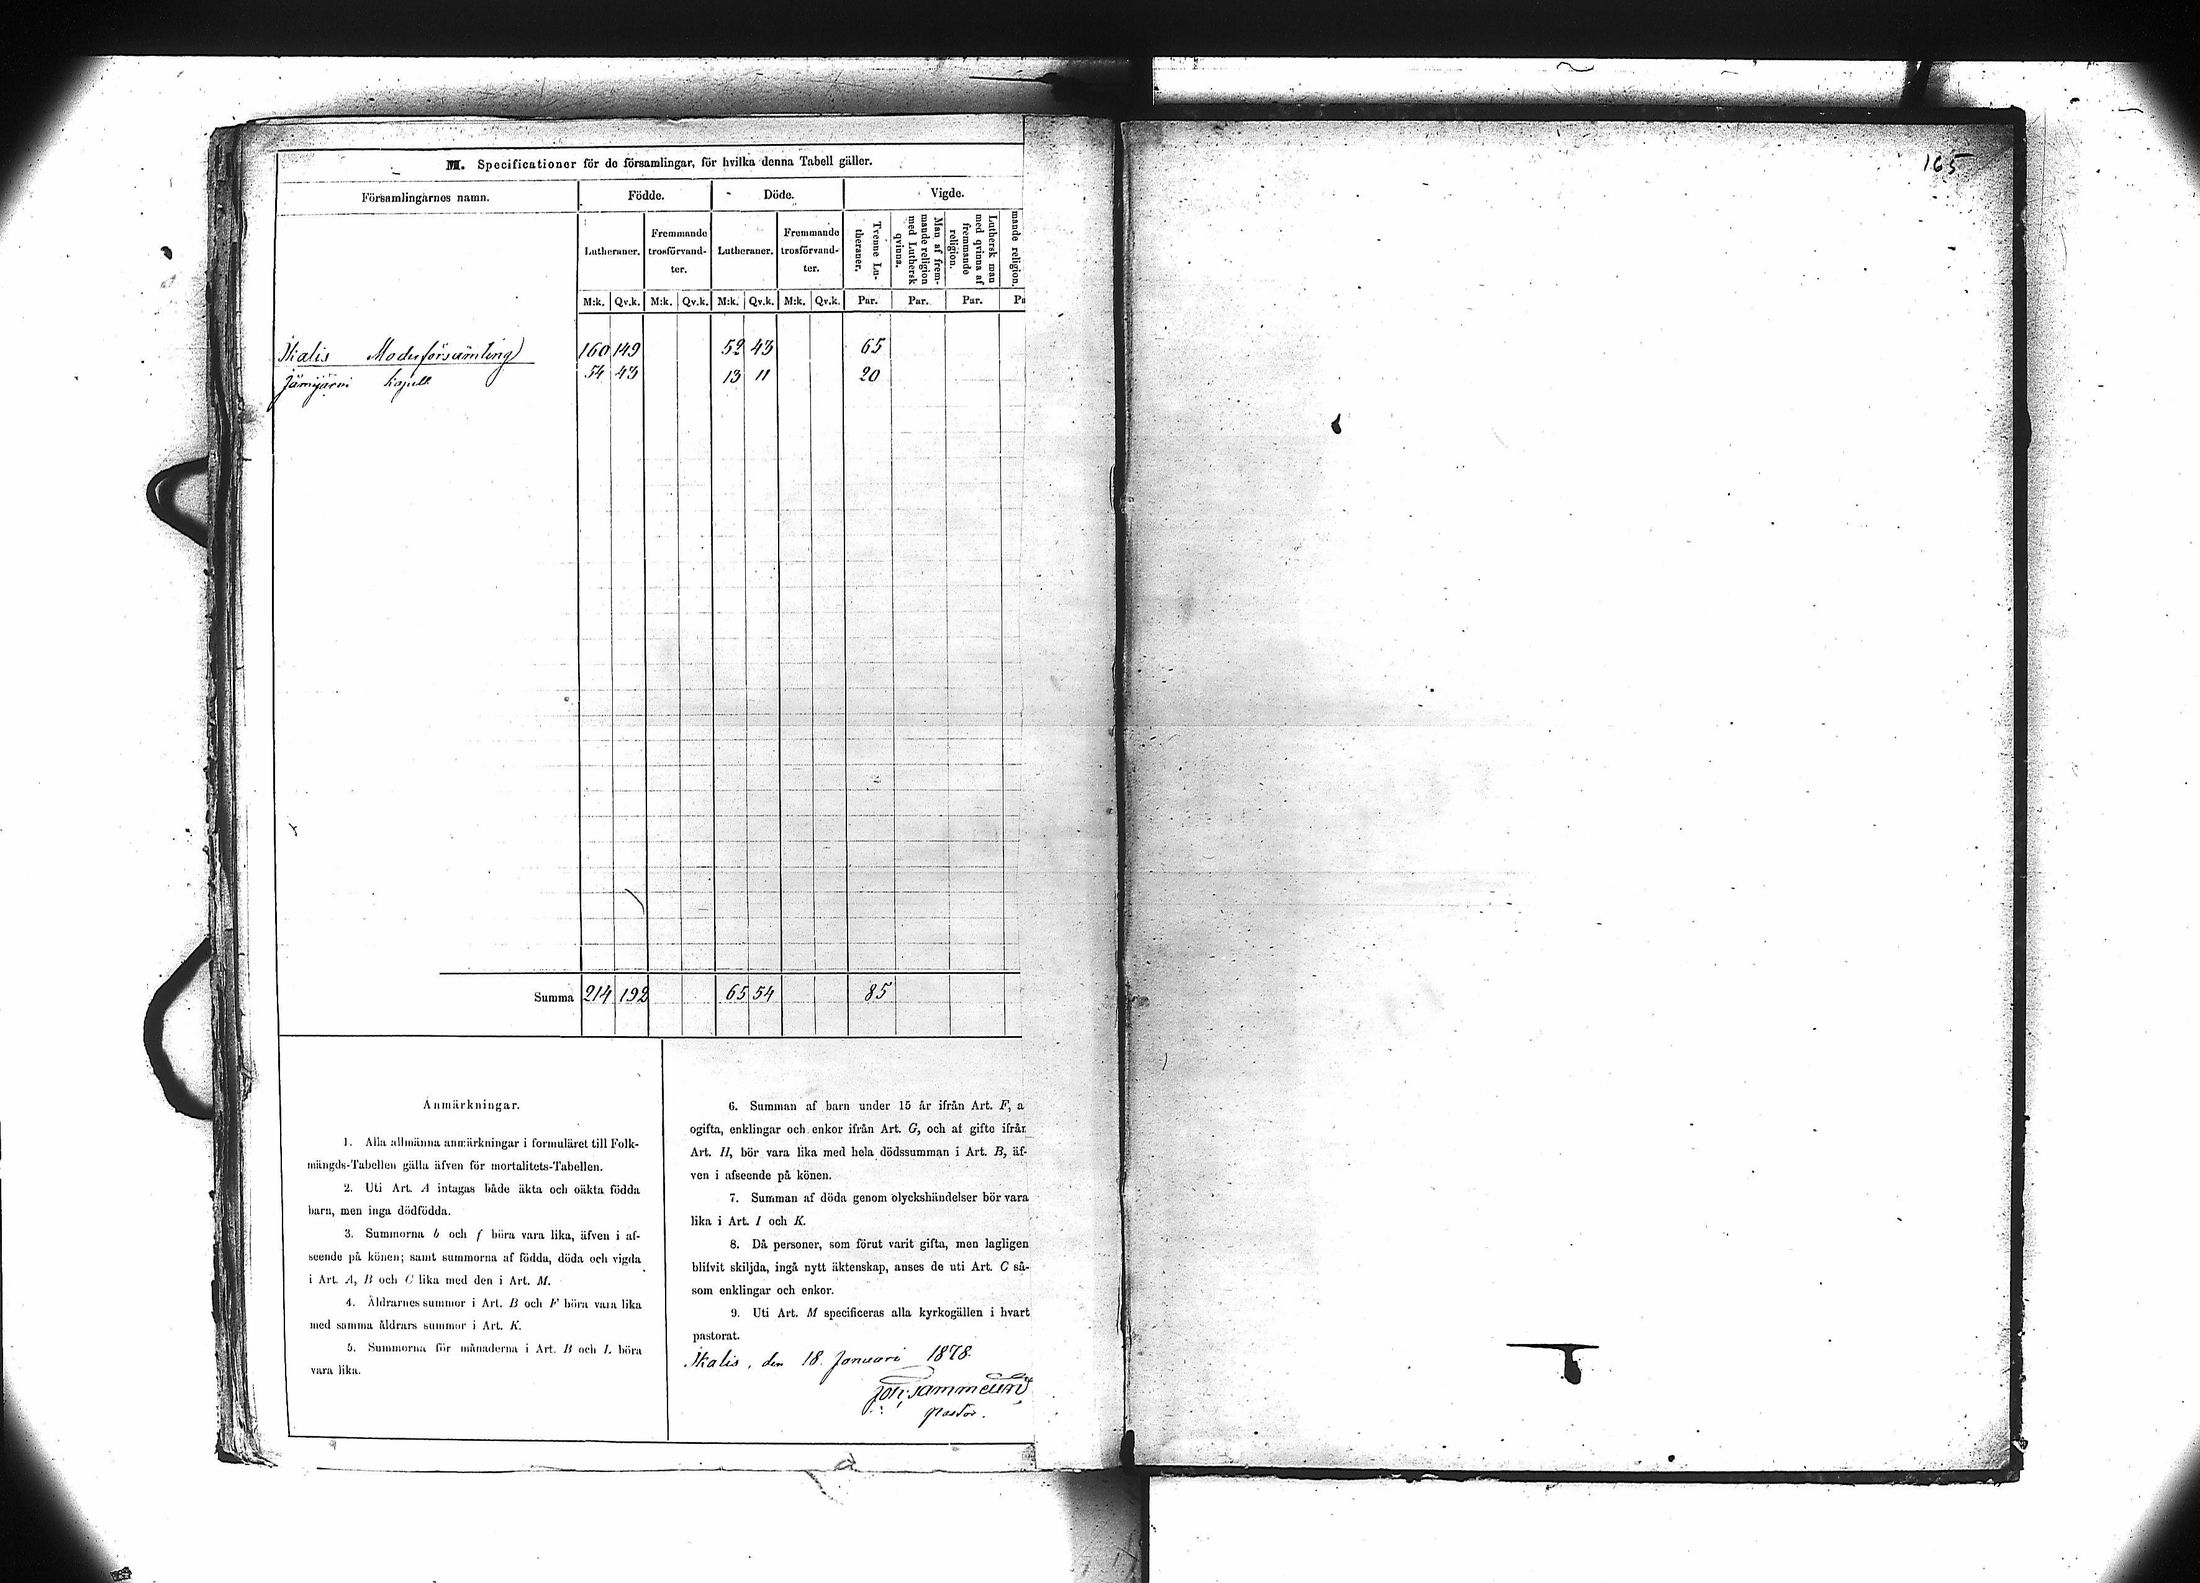 M. Specificationer för de församlingar, för hvilka denna Tabell gäller.
Församlingarnes namn.
Födde.
Döde.
Vigde.
Lutheraner.
Fremmande trosförvand-
ter.
Lutheraner.
Fremmande trosförvand-
ter.
Tvenne Lu-
theraner.
Man af frem-
mande religion
med Luthersk
qvinna.
Luthersk man
med qvinna af
fremmande
religion.
mande religion.
M:k. Qv.k. M:k. Qv.k. M:k. Qv.k. M:k. Qv.k. Par. Par. Par. Pa
Ikalis Moderförsamling 160 149 52 43 65
Jämijärvi Kapell 54 43 13 11 20
Summa 214 192 65 54 85
Anmärkningar.
1. Alla allmänna anmärkningar i formuläret till Folk-
mängds-Tabellen gälla äfven för mortalitets-Tabellen.
2. Uti Art. A intagas både äkta och oäkta födda
barn, men inga dödfödda.
3. Summorna b och f böra vara lika, äfven i af-
seende på könen; samt summorna af födda, döda och vigda
i Art. A, B och C lika med den i Art. M.
4. Åldrarnes summor i Art. B och F böra vara lika
med samma åldrars summor i Art. K.
5. Summorna för månaderna i Art. B och L böra
vara lika.
6. Summan af barn under 15 år ifrån Art. F, a
ogifta, enklingar och enkor ifrån Art. G, och af gifte ifrån
Art. H, bör vara lika med hela dödssumman i Art. B, äf-
ven i afseende på könen.
7. Summan af döda genom olyckshändelser bör vara
lika i Art. I och K.
8. Då personer, som förut varit gifta, men lagligen
blifvit skiljda, ingå nytt äktenskap, anses de uti Art. C så-
som enklingar och enkor.
9. Uti Art. M specificeras alla kyrkogällen i hvart
pastorat.
Ikalis, den 18. Januari 1878.
Joh. Sammelin
Pastor.
165